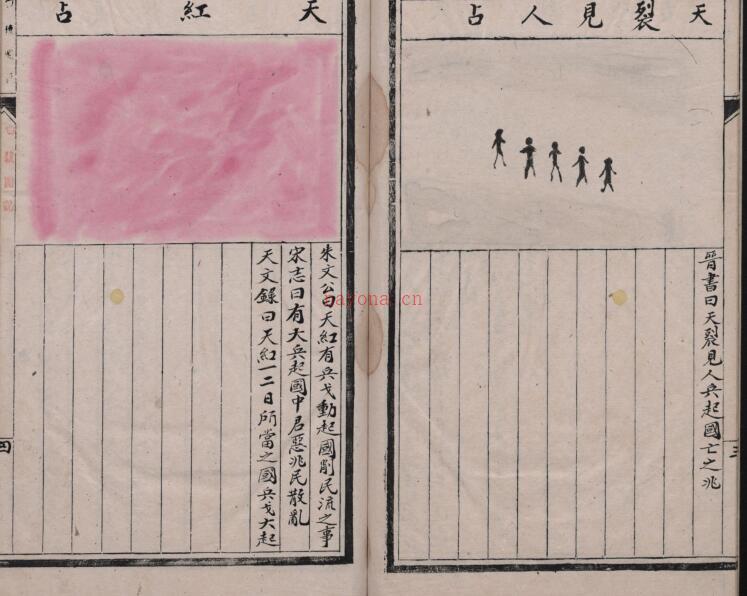 天裂見人占
晉書曰天裂見人兵起國亡之兆
三
天紅占
朱文公曰天紅有兵戈動起國削民流之事
宋志曰有大兵起國中君惡兆民散亂
天文錄曰天紅一二日所當之國兵戈大起
四
bayona.cn